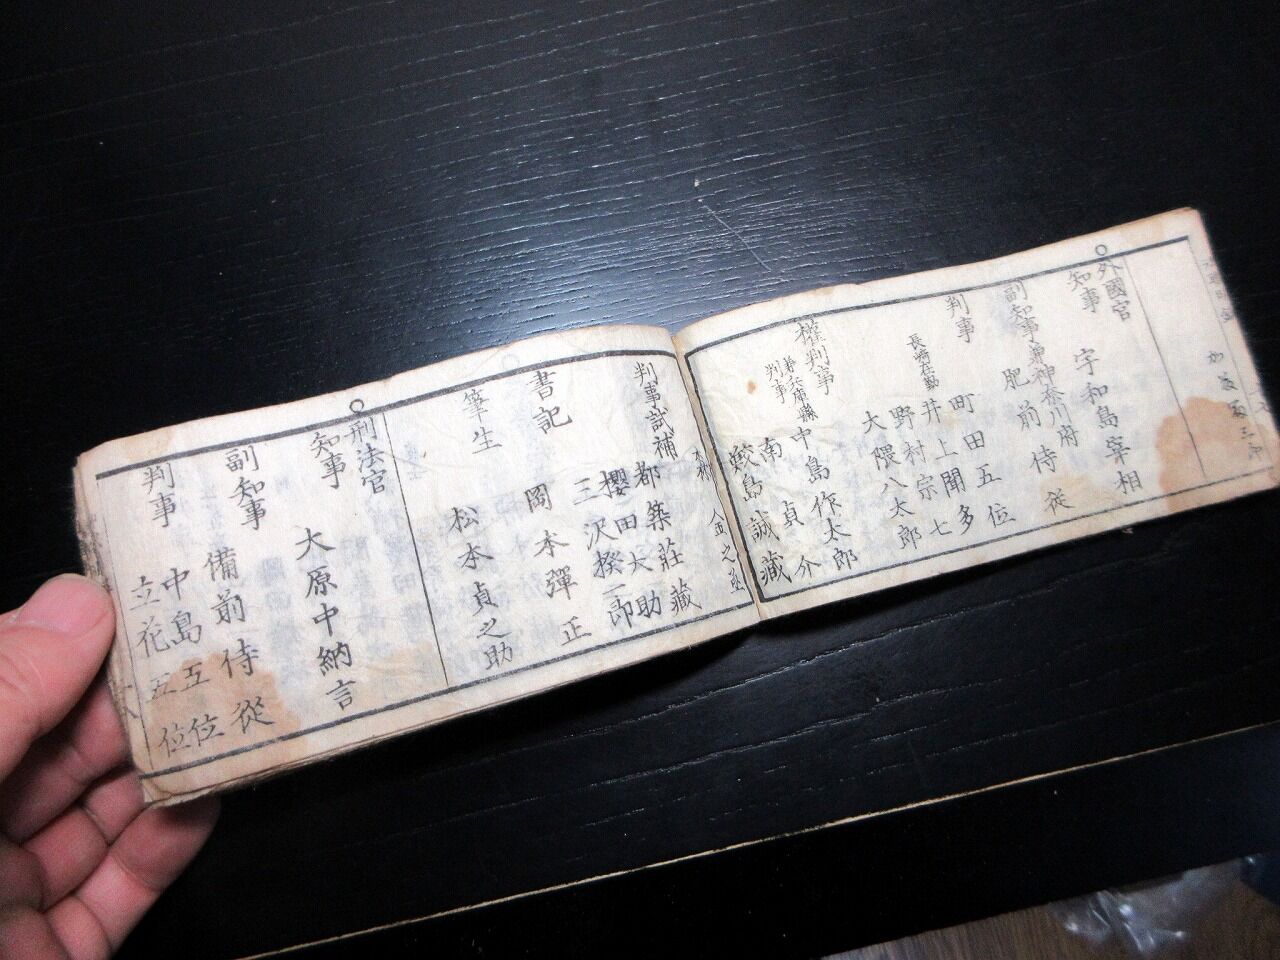 外國官
知事 宇和島宰相
副知事兼神奈川府 肥前侍從
判事 町田五位
長崎在勤 井上聞多
野村宗七
大隈八太郎
權判事 中島作太郎
兼兵庫縣判事 南貞介
鮫島誠藏
判事試補 都築莊藏
櫻田大助
三沢揆一郎
書記 岡本彈正
筆生 松本貞之助
刑法官
知事 大原中納言
副知事 備前侍從
判事 中島五位
立花五位